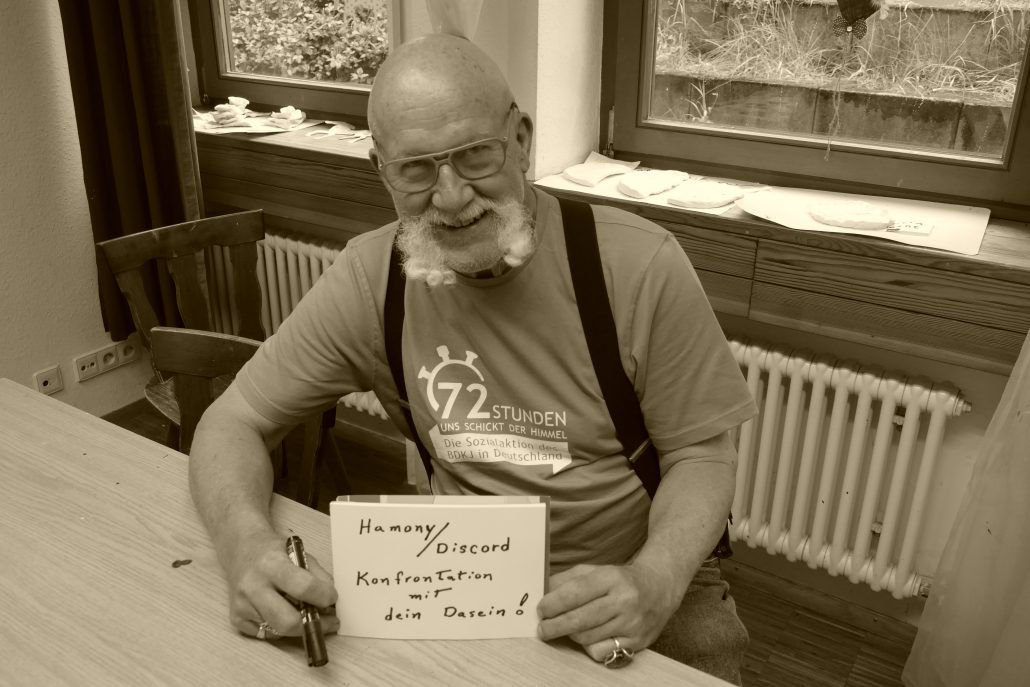 72 STUNDEN
UNS SCHICKT DER HIMMEL
Die Sozialaktion des
BDKJ in Deutschland
Hamony/
Discord
Konfrontation
mit
dein Dasein!